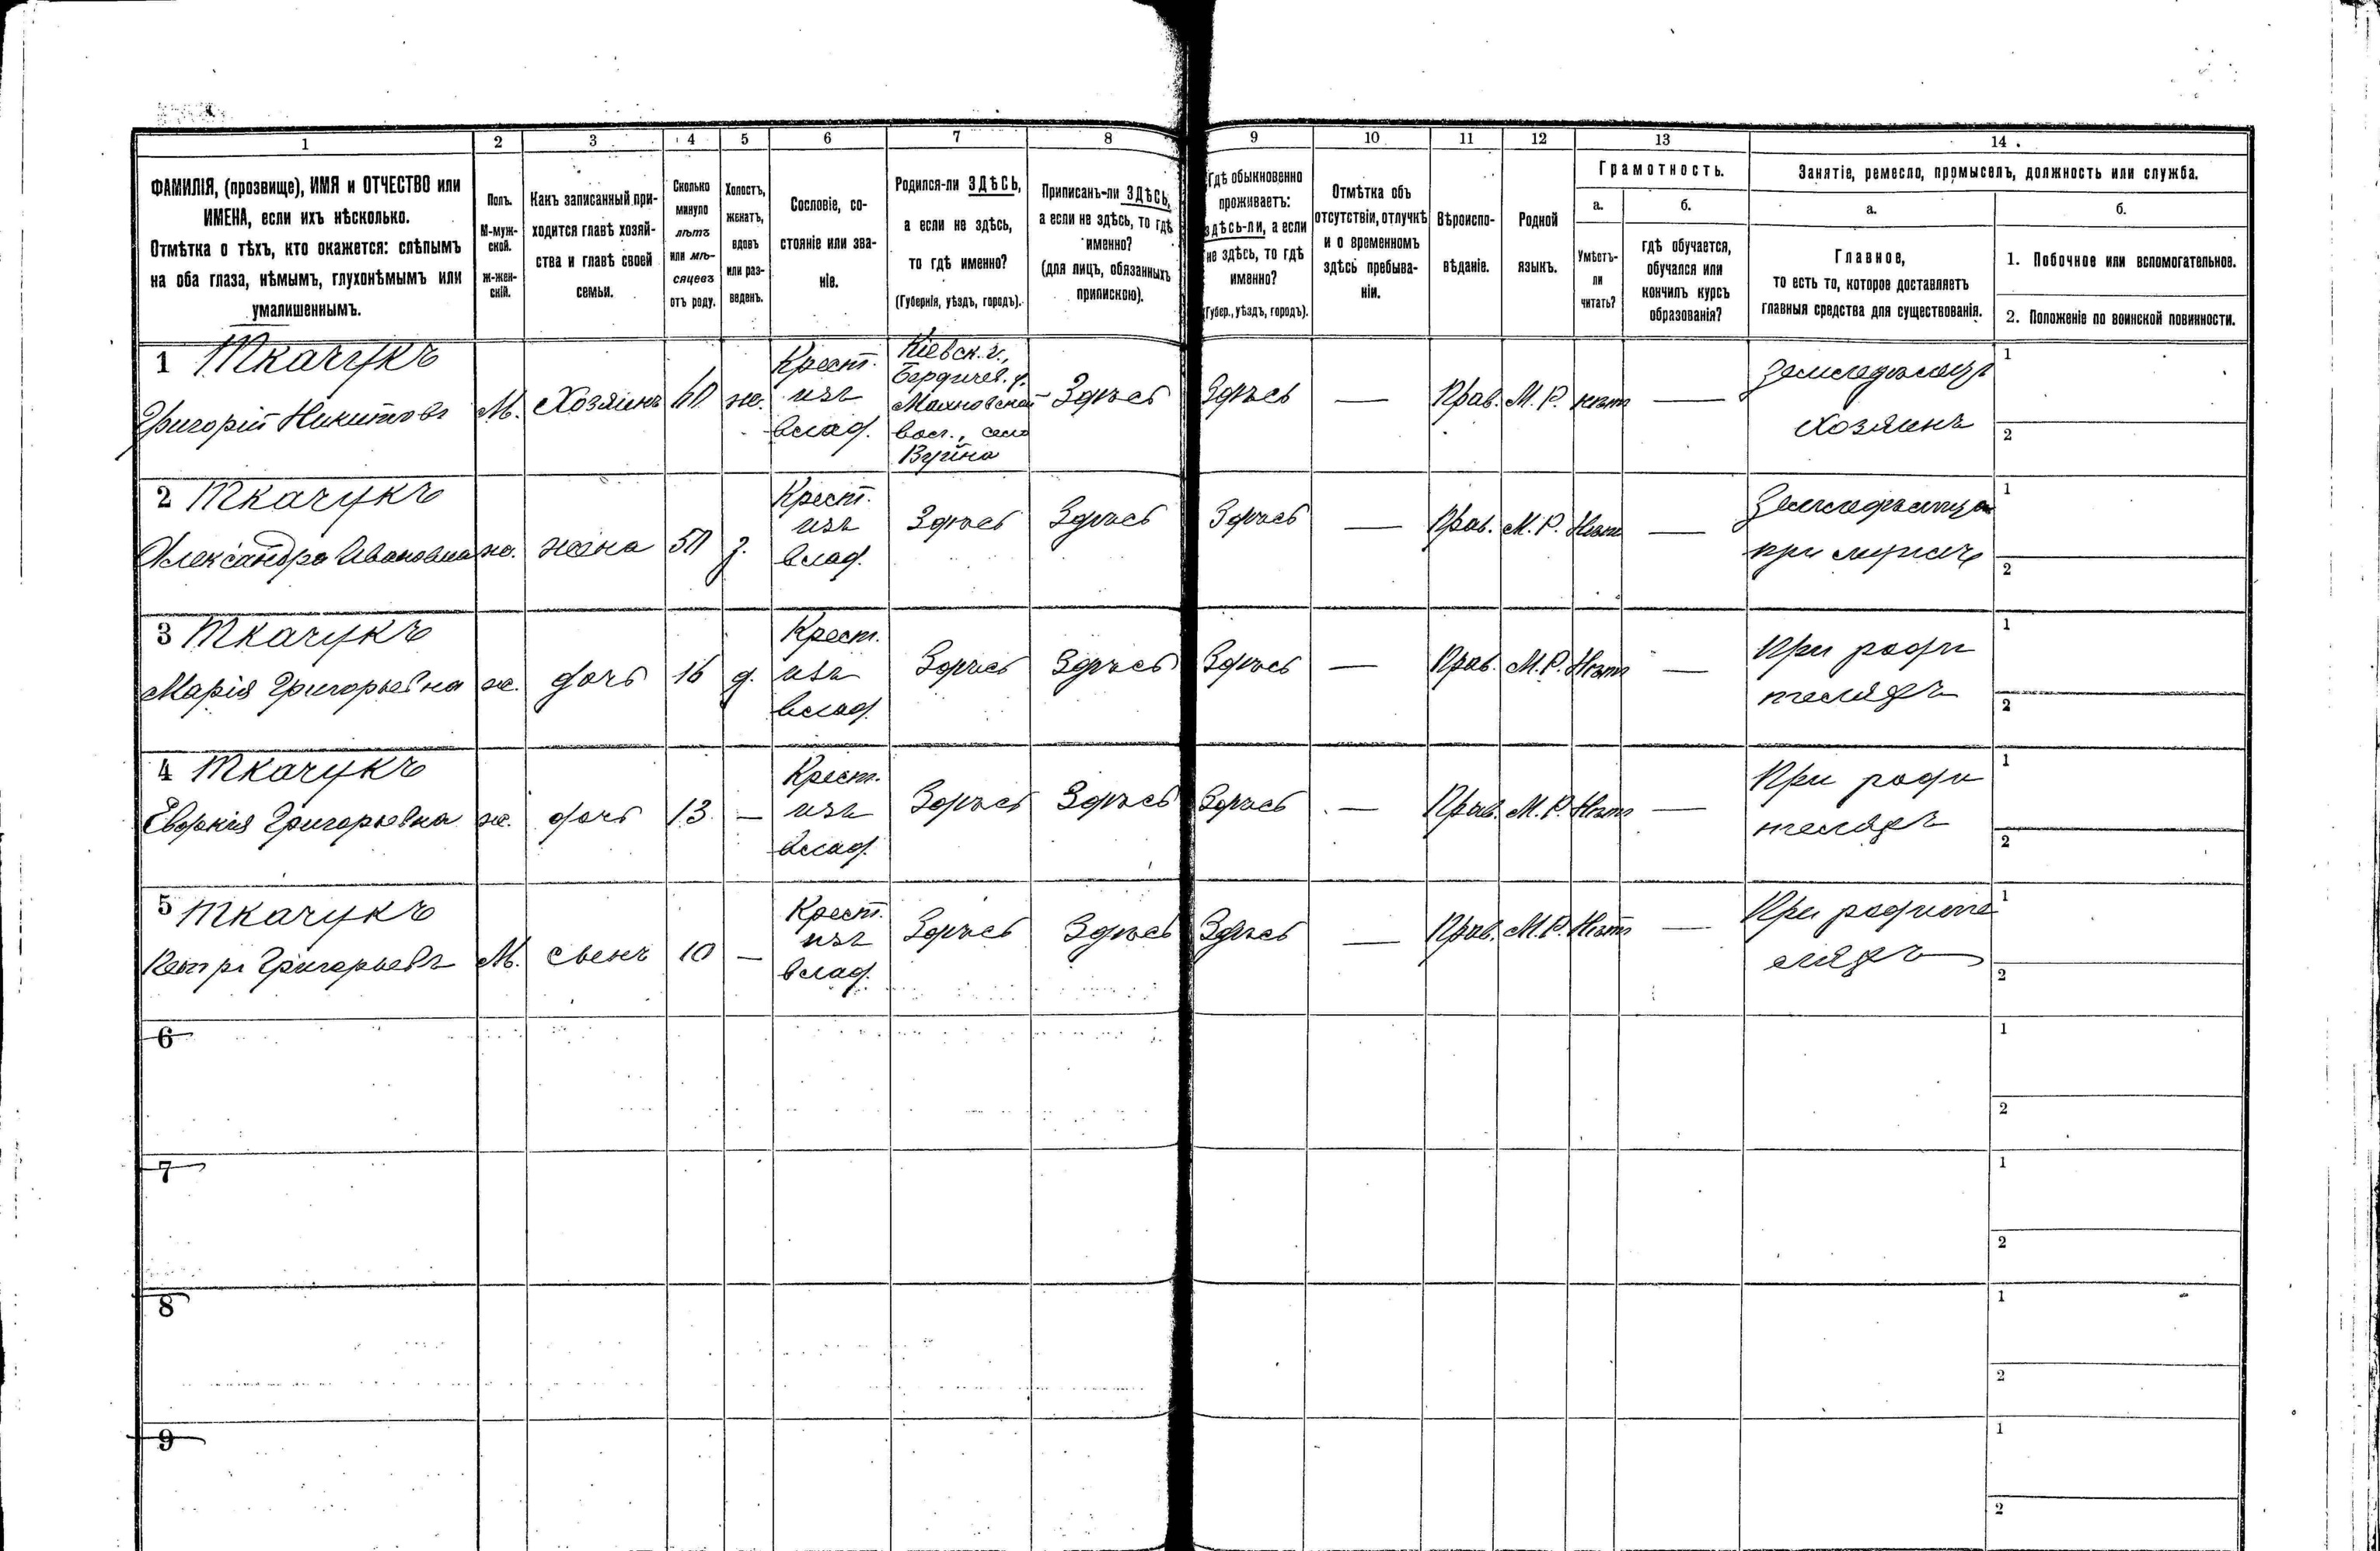 1
2
3
4
5
6
7
8
9
10
11
12
13
14
ФАМИЛІЯ, (прозвище), ИМЯ и ОТЧЕСТВО или
ИМЕНА, если ихъ нѣсколько.
Отмѣтка о тѣхъ, кто окажется: слѣпымъ
на оба глаза, нѣмымъ, глухонѣмымъ или
умалишеннымъ.
Полъ.
М-муж-
ской.
Ж-жен-
скій.
Какъ записанный при-
ходится главѣ хозяй-
ства и главѣ своей
семьи.
Сколько
минуло
лѣтъ
или мѣ-
сяцевъ
отъ роду.
Холостъ,
женатъ,
вдовъ
или раз-
веденъ.
Сословіе, со-
стояніе или зва-
ніе.
Родился-ли ЗДѢСЬ,
а если не здѣсь,
то гдѣ именно?
(Губернія, уѣздъ, городъ).
Приписанъ-ли ЗДѢСЬ,
а если не здѣсь, то гдѣ
именно?
(для лицъ, обязанныхъ
припискою).
Гдѣ обыкновенно
проживаетъ:
здѣсь-ли, а если
не здѣсь, то гдѣ
именно?
(Губер., уѣздъ, городъ).
Отмѣтка объ
отсутствіи, отлучкѣ
и о временномъ
здѣсь пребыва-
ніи.
Вѣроиспо-
вѣданіе.
Родной
языкъ.
Грамотность.
а.
Умѣетъ-
ли
читать?
б.
гдѣ обучается,
обучался или
кончилъ курсъ
образованія?
Занятіе, ремесло, промыселъ, должность или служба.
а.
Главное,
то есть то, которое доставляетъ
главныя средства для существованія.
б.
1. Побочное или вспомогательное.
2. Положеніе по воинской повинности.
1 Ткачукъ
Григорій Никитовъ
М.
Хозяинъ
60
ж.
Крест.
изъ
влад.
Кіевск. г.,
Бердичев. у.
Махновской
вол., село
Вуйна
Здѣсь
Здѣсь
—
Прав.
М. Р.
нѣтъ
—
Земледѣлецъ
хозяинъ
1
2
2 Ткачукъ
Александра Ивановна
ж.
жена
50
з.
Крест.
изъ
влад.
Здѣсь
Здѣсь
Здѣсь
—
Прав.
М. Р.
Нѣтъ
—
Земледѣлица
при мужѣ
1
2
3 Ткачукъ
Марія Григорьевна
ж.
дочь
16
д.
Крест.
изъ
влад.
Здѣсь
Здѣсь
Здѣсь
—
Прав.
М. Р.
Нѣтъ
—
При роди
теляхъ
1
2
4 Ткачукъ
Евдокія Григорьевна
ж.
дочь
13
—
Крест.
изъ
влад.
Здѣсь
Здѣсь
Здѣсь
—
Прав.
М. Р.
Нѣтъ
—
При роди
теляхъ
1
2
5 Ткачукъ
Петръ Григорьевъ
М.
сынъ
10
—
Крест.
изъ
влад.
Здѣсь
Здѣсь
Здѣсь
—
Прав.
М. Р.
Нѣтъ
—
При родите
ляхъ
1
2
6
1
2
7
1
2
8
1
2
9
1
2